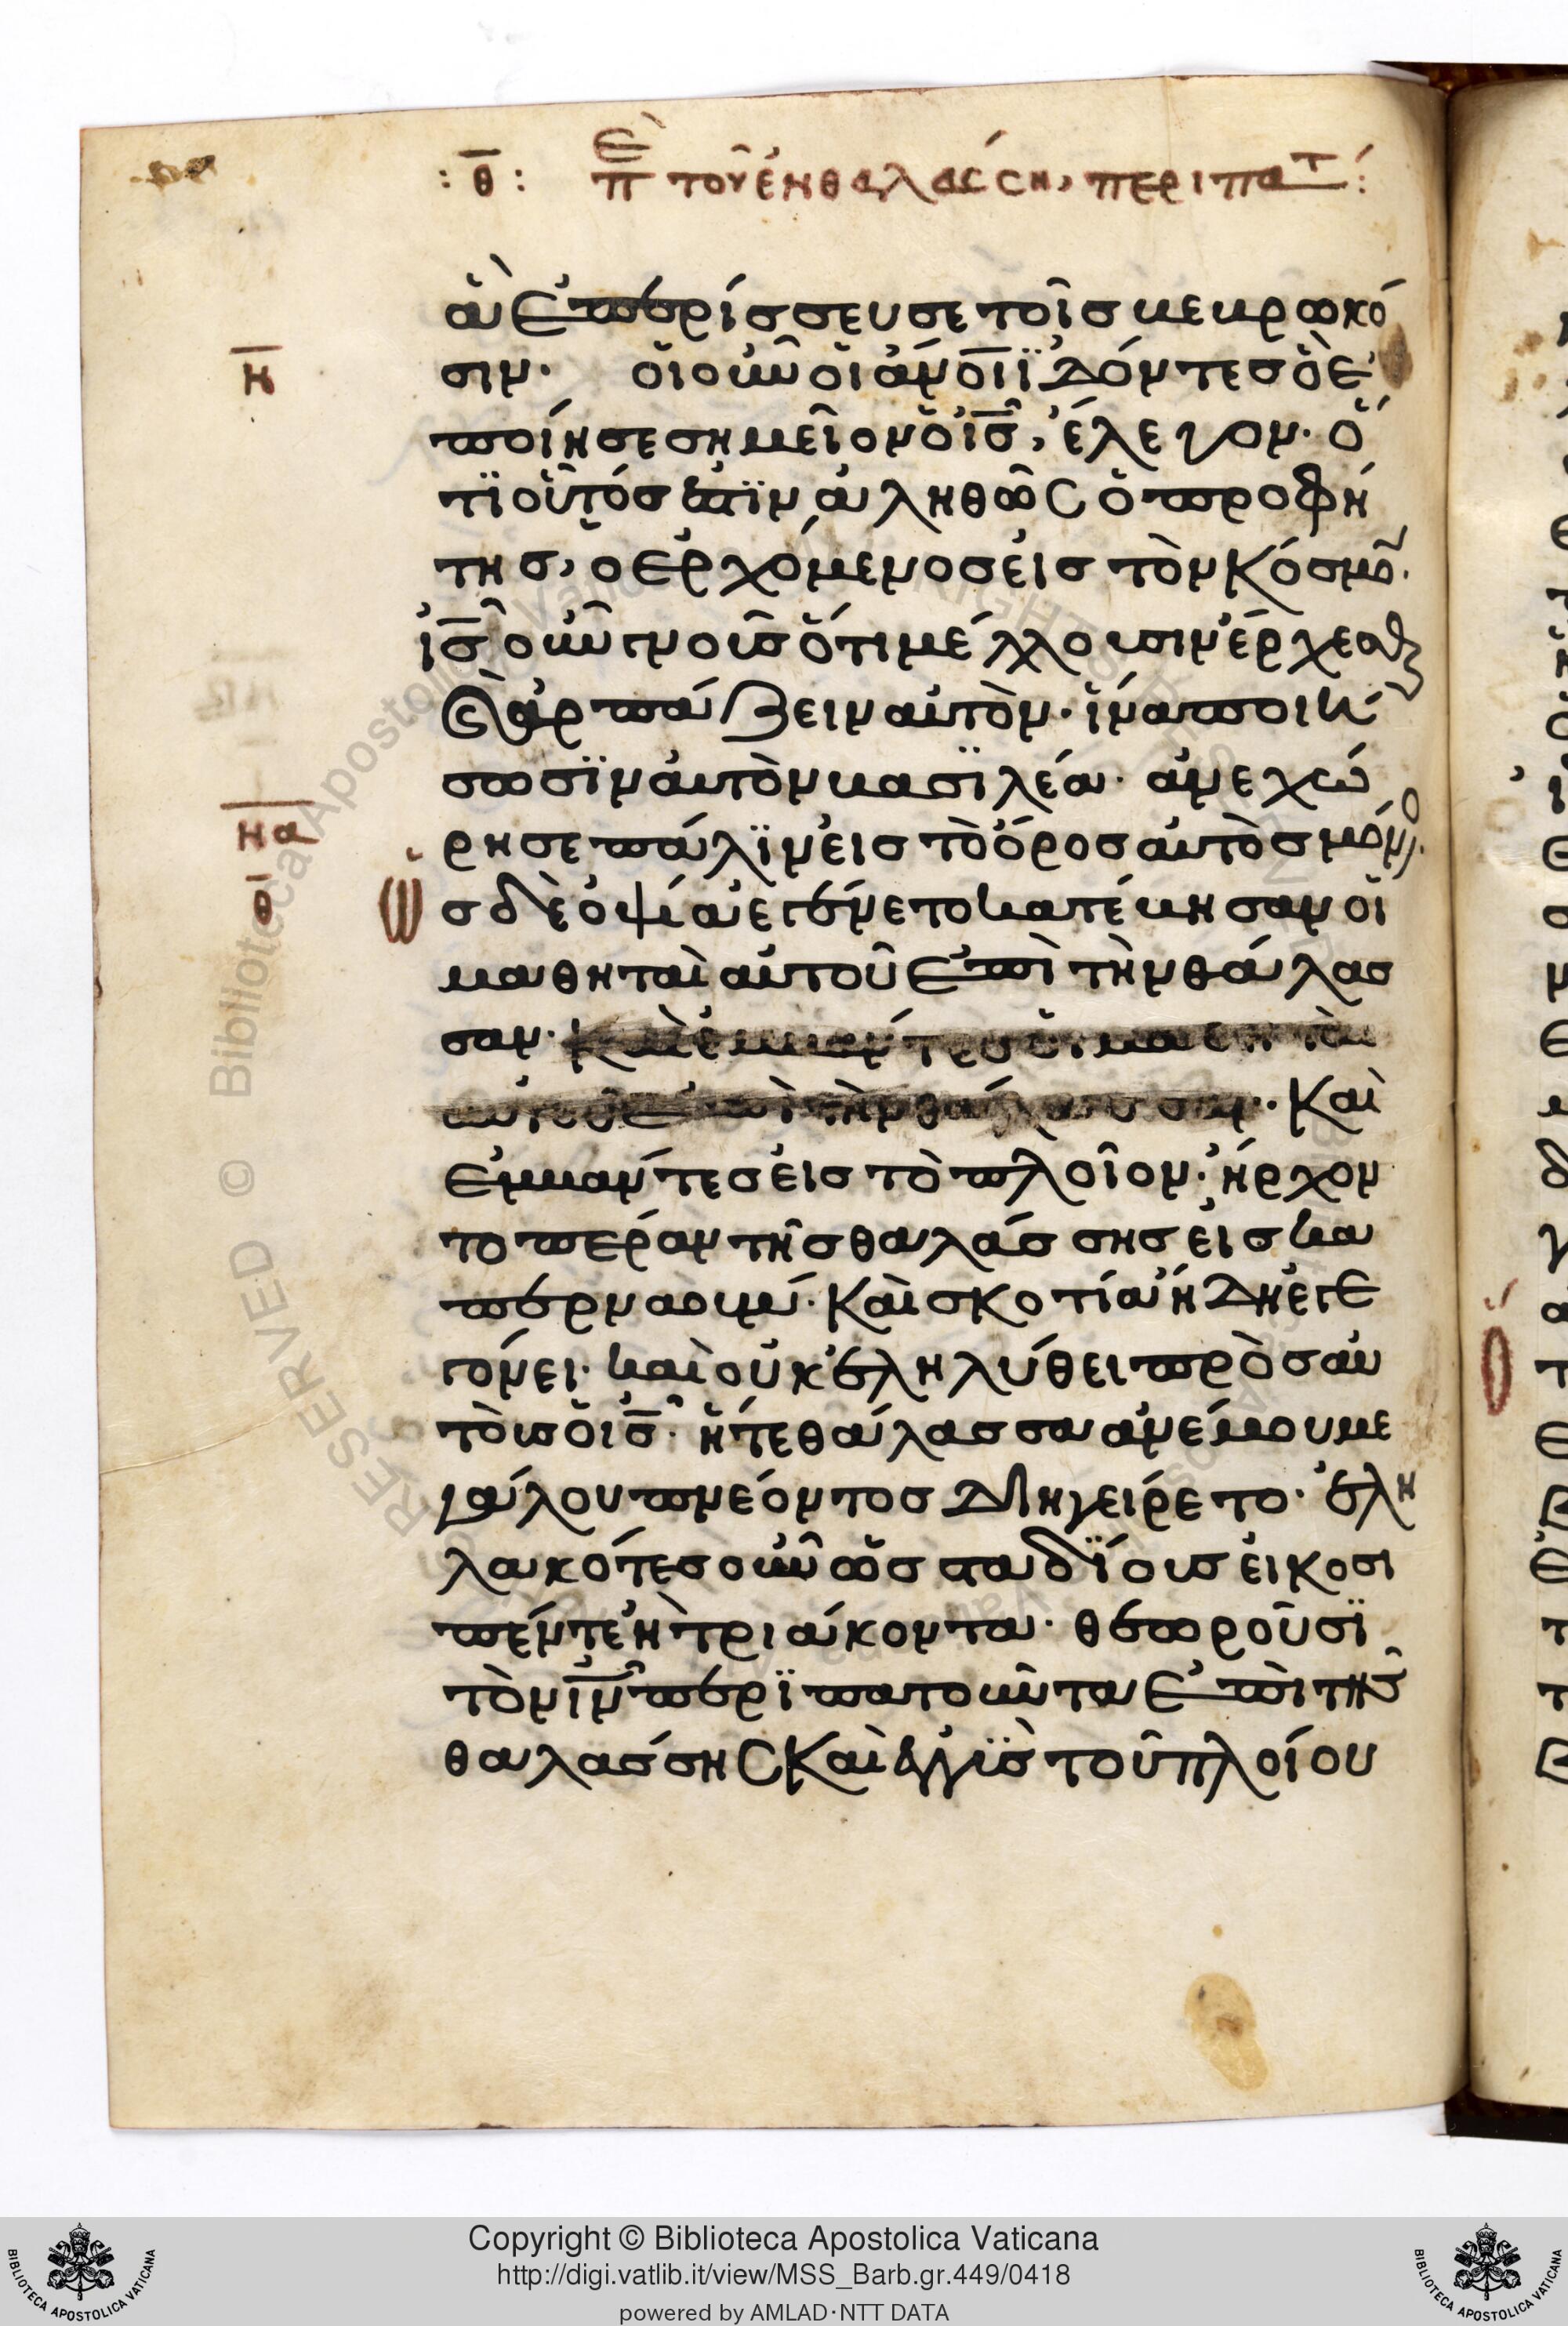 : θ : Πε τοῦ ἐν θαλάσσῃ, περιπατ :
ἃ ἐπερίσσευσε τοῖς βεβρωκό
η
σιν. οἱ οὖν οἱ ἄνοι ἰδόντες ὃ ἐ
ποίησε σημεῖον ὁ ις, ἔλεγον. ὅ
τι οὗτός ἐστιν ἀληθῶς ὁ προφή
της, ὁ ἐρχόμενος εἰς τὸν κόσμον.
ις οὖν γνοὺς ὅτι μέλλουσιν ἔρχεσθαι
καὶ ἁρπάζειν αὐτὸν. ἵνα ποιή
σωσιν αὐτὸν βασιλέα. ἀνεχώ
ηα
ρησε πάλιν εἰς τὸ ὄρος αὐτὸς μόνος.
θ
Ὡς δὲ ὀψία ἐγένετο κατέβησαν οἱ
μαθηταὶ αὐτοῦ ἐπὶ τὴν θάλασ
σαν. καὶ ἐμβάντες οἱ μαθηταὶ
αὐτοῦ ἐπὶ τὴν θάλασσαν. Καὶ
ἐμβάντες εἰς τὸ πλοῖον. ἤρχον
το πέραν τῆς θαλάσσης εἰς κα
περναούμ. Καὶ σκοτία ἤδη ἐγε
γόνει. καὶ οὐκ ἐληλύθει πρὸς αὐ
τοὺς ὁ ις. ἥ τε θάλασσα ἀνέμου με
γάλου πνέοντος διηγείρετο. ἐλη
λακότες οὖν ὡς σταδίους εἴκοσι
πέντε ἢ τριάκοντα. θεωροῦσι
τὸν ιν περιπατοῦντα ἐπὶ τῆς
θαλάσσης καὶ ἐγγὺς τοῦ πλοίου
Copyright © Biblioteca Apostolica Vaticana
http://digi.vatlib.it/view/MSS_Barb.gr.449/0418
powered by AMLAD·NTT DATA
BIBLIOTECA APOSTOLICA VATICANA
BIBLIOTECA APOSTOLICA VATICANA